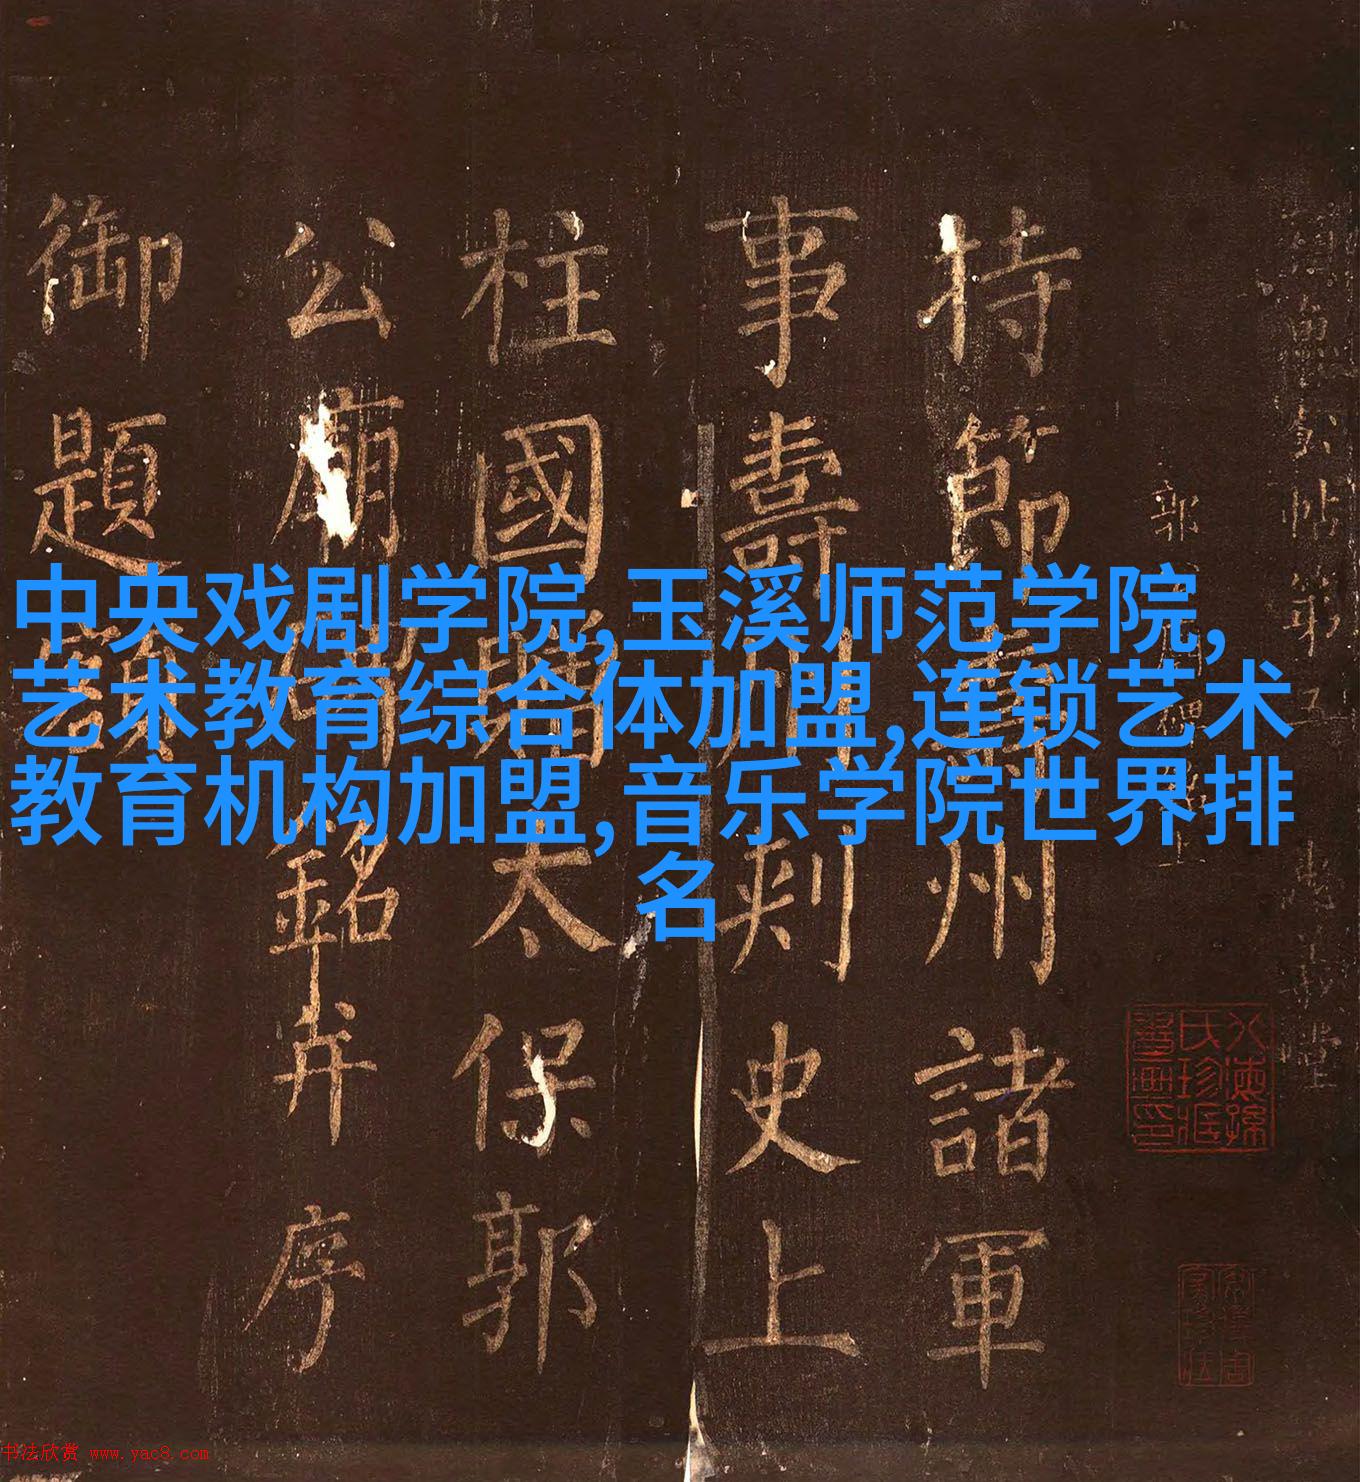 中央戏剧学院,玉溪师范学院,
艺术教育综合体加盟,连锁艺术
教育机构加盟,音乐学院世界排
名
特節壽州諸軍
事壽州刺史上
柱國贈太保郭
公廟碑銘并序
御題額
书法欣赏 www.yac8.com